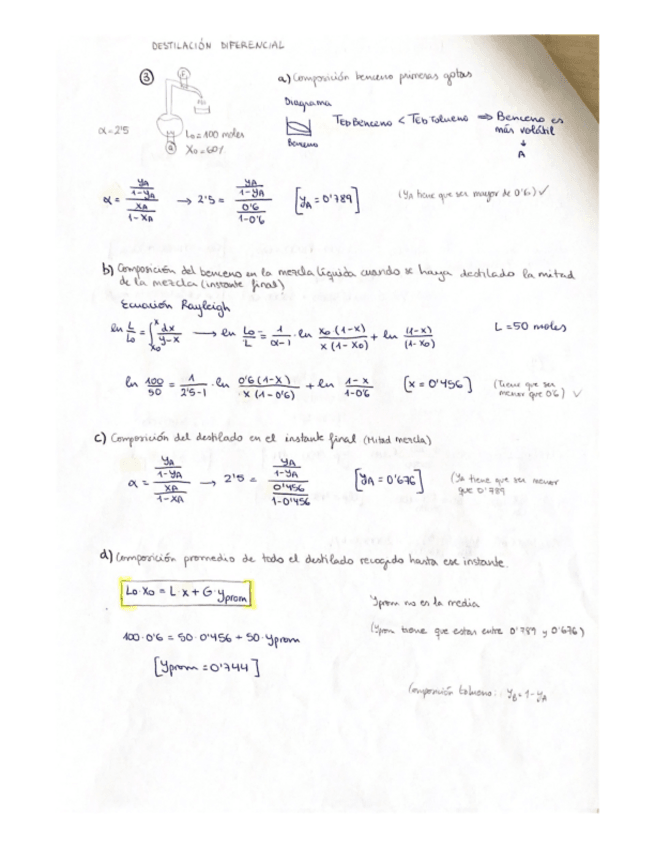 DESTILACIÓN DIFERENCIAL
③
α=2'5
L₀=100 moles
X₀=60%
Q
a) Composición benceno primeras gotas
Diagrama
Benceno
TEB Benceno < TEB Tolueno ⇒ Benceno es más volátil
↓
A
α = (yA/(1-yA))/(xA/(1-xA)) → 2'5 = (yA/(1-yA))/(0'6/(1-0'6)) [yA = 0'789] (yA tiene que ser mayor de 0'6) ✓
b) Composición del benceno en la mezcla líquida cuando se haya destilado la mitad
de la mezcla (instante final)
Ecuación Rayleigh
ln L/L₀ = ∫ₓ₀ˣ dx/(y-x) → ln L₀/L = 1/(α-1) · ln x₀(1-x)/(x(1-x₀)) + ln (1-x)/(1-x₀) L=50 moles
ln 100/50 = 1/(2'5-1) · ln 0'6(1-x)/(x(1-0'6)) + ln (1-x)/(1-0'6) [x = 0'456] (Tiene que ser menor que 0'6) ✓
c) Composición del destilado en el instante final (Mitad mezcla)
α = (yA/(1-yA))/(xA/(1-xA)) → 2'5 = (yA/(1-yA))/(0'456/(1-0'456)) [yA = 0'676] (Ya tiene que ser menor que 0'789
d) Composición promedio de todo el destilado recogido hasta ese instante.
L₀·X₀ = L·x + G·yprom
Yprom no es la media
(Yprom tiene que estar entre 0'789 y 0'676)
100·0'6 = 50·0'456 + 50·yprom
[Yprom = 0'744]
Composición tolueno: yB = 1-yA